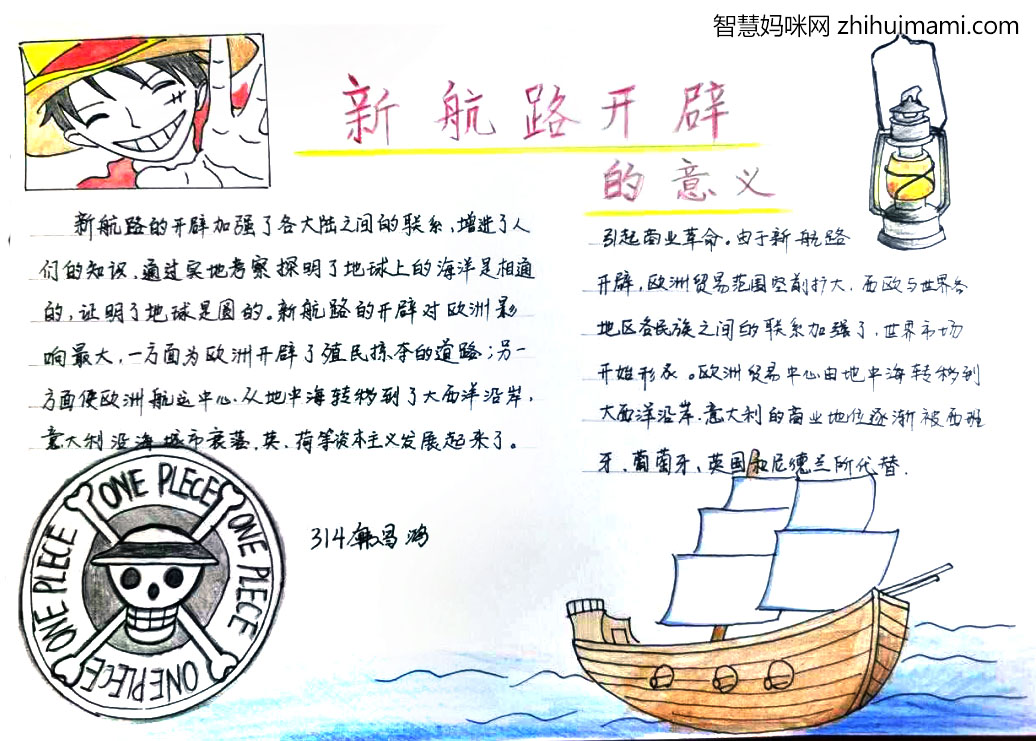 智慧妈咪网 zhihuimami.com
新航路开辟
的意义
新航路的开辟加强了各大陆之间的联系,增进了人
们的知识,通过实地考察探明了地球上的海洋是相通
的,证明了地球是圆的。新航路的开辟对欧洲影
响最大,一方面为欧洲开辟了殖民掠夺的道路;另一
方面使欧洲航运中心从地中海转移到了大西洋沿岸,
意大利沿海城市衰落,英、荷等资本主义发展起来了。
引起商业革命。由于新航路
开辟,欧洲贸易范围空前扩大,西欧与世界各
地区各民族之间的联系加强了,世界市场
开始形成。欧洲贸易中心由地中海转移到
大西洋沿岸,意大利的商业地位逐渐被西班
牙、葡萄牙、英国和尼德兰所代替.
314
ONE PLECE
ONE PLECE
ONE PLECE
ONE PLECE